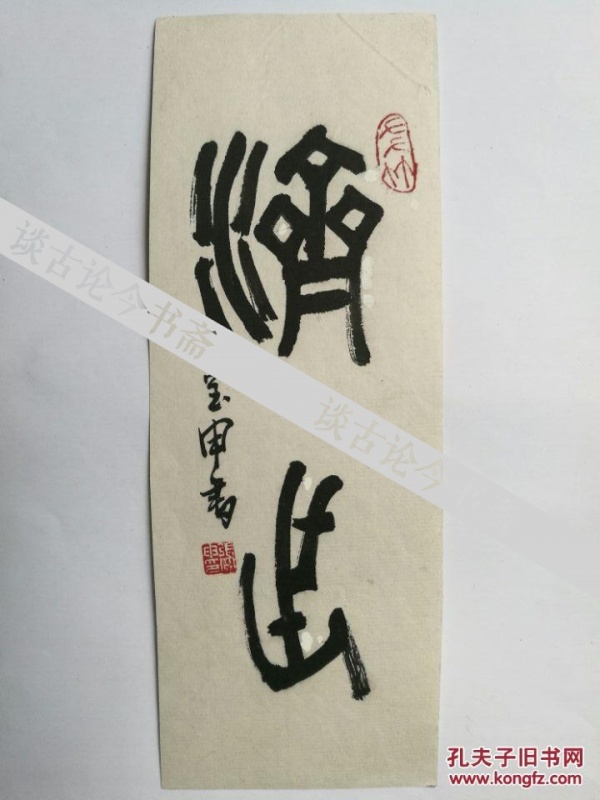 濟世
宝申书
谈古论今书斋
谈古论今
孔夫子旧书网
www.kongfz.com